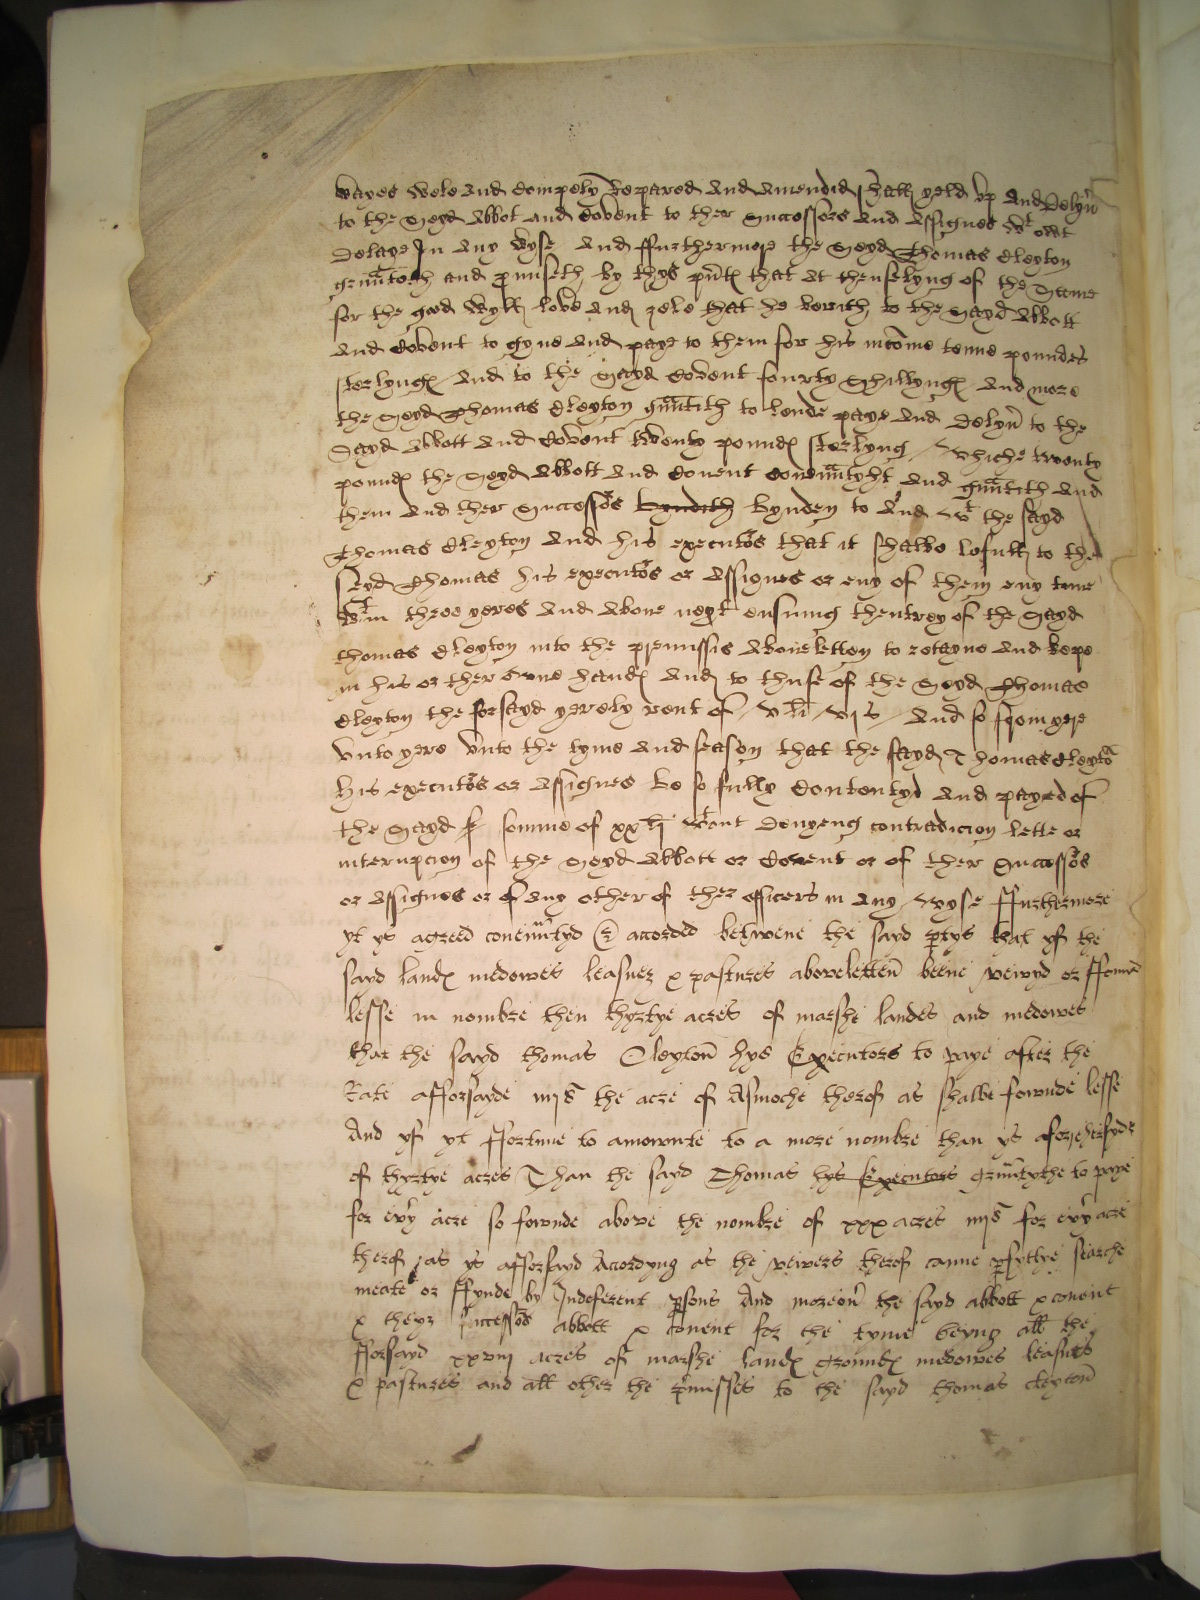 wayes wele and competly Repared and Amendid shall yeld vp and Delyũ
to the Seyd Abbot and Covent to ther Successors and Assignes wt owt
Delaye In Any wyse And ffurthermore the Seyd Thomas Cleyton
grunteth and promiseth by thys pñtꝭ that at thenselyng of the Same
for the good wyll love and zele that he berith to the Sayd Abbott
And Covent to gyue and paye to them for his income tenne poundes
sterlyngꝭ And to the Sayd Covent fourty Shillyngꝭ And more
the Seyd Thomas Cleyton gũntith to lende paye And Delyũ to the
Sayd Abbott And Covent twenty poundꝭ sterlyng / whiche twenty
poundꝭ the Seyd Abbott and Couent Coueñntyht And gũntith And
them And ther Successors byndith bynden to And wt the sayd
Thomas Cleyton And his executors that it shalbe lefull to the
seyd Thomas his executors or Assignes or eny of them eny tyme
wtin three yeres And Aboue next ensuing thentrey of the Sayd
thomas Cleyton into the premissis Aboueletten to retayne And kepe
in his or ther owne handꝭ And to thuse of the Seyd Thomas
Cleyton the forsayd yerely rent of / v li / vj s / And so from yere
vnto yere vnto the tyme And season that the sayd Thomas Cleytõ
his executors or Assignes be so fully Contentyd And payed of
the Sayd somme of xx li wtout Denyeng contradicion lette or
interupcion of the Seyd Abbott or Couent or of ther Successors
or Assignes or of Any other of ther officers in Any wyse ffurthermore
yt ys agreed coueñntyd & accorded betwene the sayd ꝑtys that yf the
sayd landꝭ medowes leasuez & pastures aboveletten beene veiwyd or ffound
lesse in nombre then thyrtye acres of marshe landes and medowes
that the sayd thomas Cleyton hys Executors to paye after the
Rate afforsayde iiijs the acre of Asmoche therof as shalbe fownde lesse
And yf yt ffortune to amownte to a more nombre than ys
of thyrtye acres Than the sayd Thomas hys Executors grũntythe to paye
for eũy acre so fownde above the nombre of xxx acres iiijs for eũy acre
therof as ys afforsayd Accordyng as the veiwers therof canne ꝑfyttlye searche
meate or ffynde by Indeferent ꝑsons And moreoũ the sayd abbott & couent
& theyr successors abbott & couent for the tyme beyng all the
fforsayd xxviij acres of marshe landꝭ groundꝭ medowes leasues
& pastures and all other the p̃misses to the sayd thomas cleyton